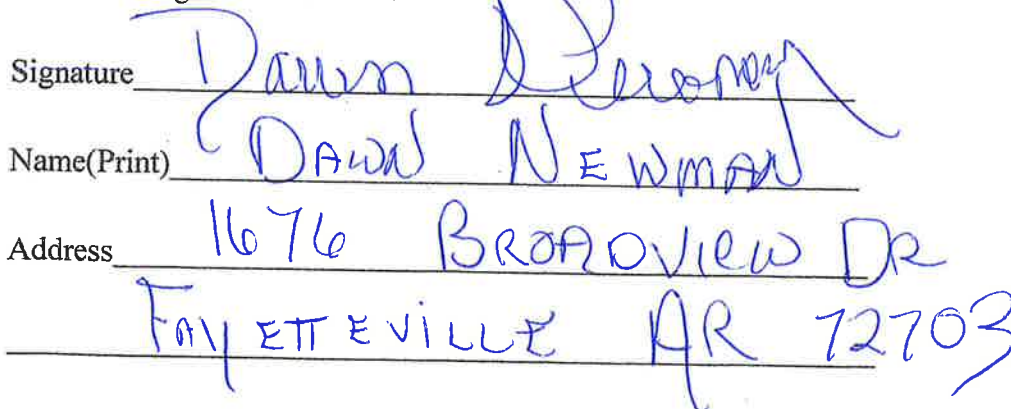 Signature Dawn Newman
Name(Print) DAWN NEWMAN
Address 1676 BROADVIEW DR
FAYETTEVILLE AR 72703